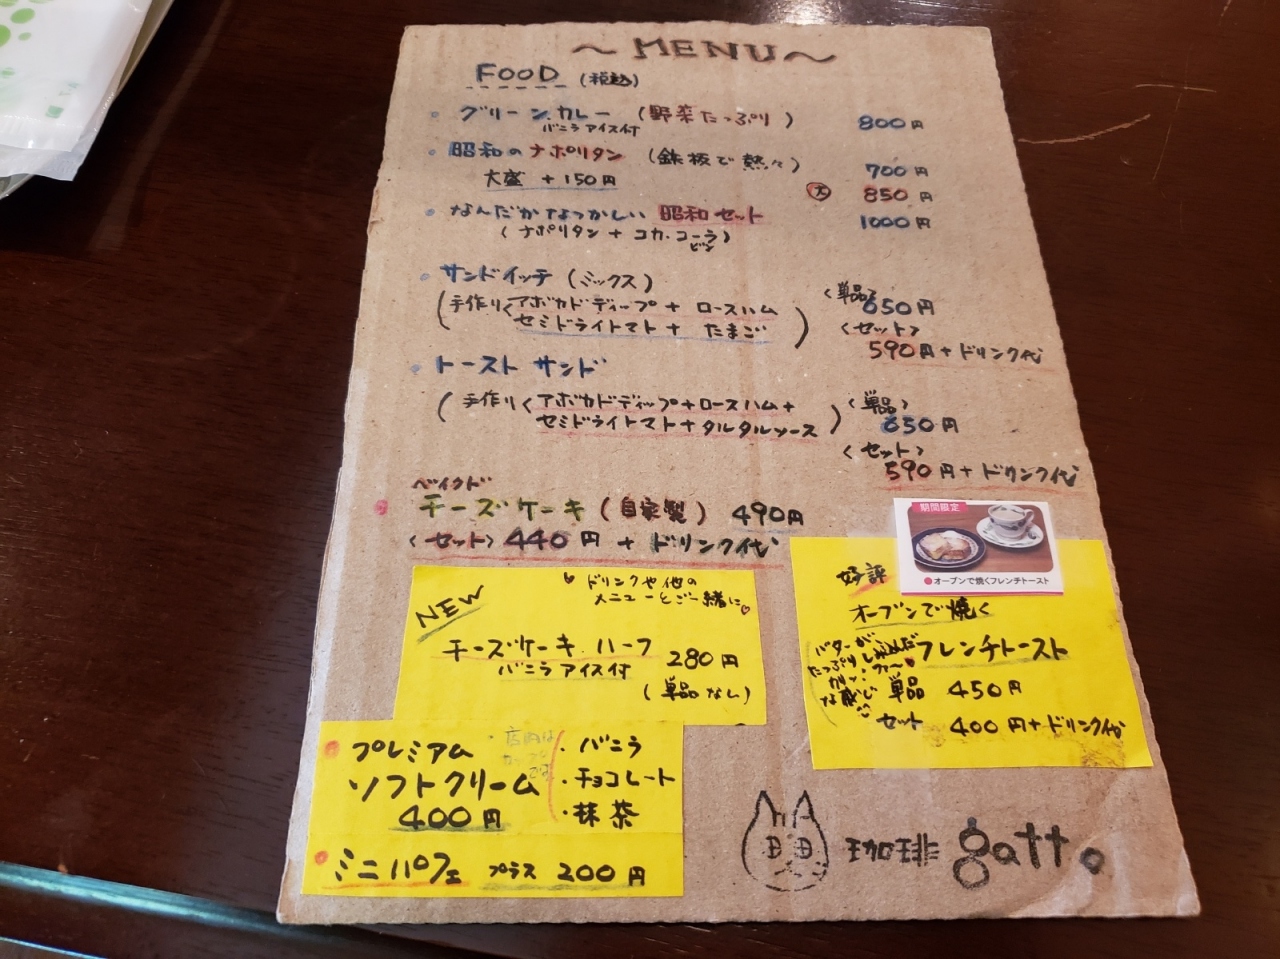 ～MENU～
FOOD (税込)
グリーンカレー (野菜たっぷり) 800円
バニラアイス付
昭和のナポリタン (鉄板で熱々) 700円
大盛 +150円 大 850円
なんだかなつかしい 昭和セット 1000円
(ナポリタン + コカ・コーラ)
ビン
サンドイッチ (ミックス)
〈単品〉650円
(手作り〈アボカドディップ+ ロースハム
セミドライトマト+ たまご)
〈セット〉
590円+ドリンク代
トースト サンド
(手作り〈アボカドディップ+ロースハム+
セミドライトマト+タルタルソース)
〈単品〉
650円
〈セット〉
590円+ドリンク代
ベイクド
チーズケーキ (自家製) 490円
〈セット〉440円 + ドリンク代
NEW
♥ドリンクや他の
メニューとご一緒に♥
チーズケーキ ハーフ 280円
バニラアイス付
(単品なし)
期間限定
●オーブンで焼くフレンチトースト
好評
オーブンで焼く
フレンチトースト
バターが
たっぷりしみ込んだ
な感じ
単品 450円
セット 400円+ドリンク代
プレミアム
ソフトクリーム
400円
・店内は
・バニラ
・チョコレート
・抹茶
ミニパフェ プラス 200円
珈琲 gatto